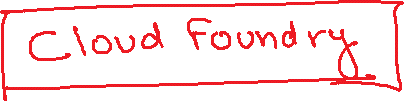 Cloud Foundry